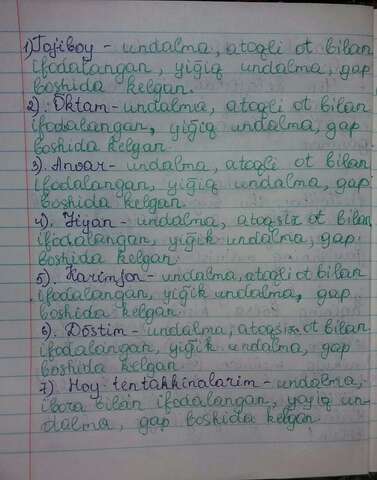 1) Tojiboy - undalma, atoqli ot bilan
ifodalangan, yiğiq undalma, gap
boshida kelgan.
2). Öktam - undalma, atoqli ot bilan
ifodalangan, yiğiq undalma, gap
boshida kelgan.
3). Anvar - undalma, atoqli ot bilan
ifodalangan, yiğiq undalma, gap
boshida kelgan.
4). Jiyan - undalma, atoqsiz ot bilan
ifodalangan, yiğik undalma, gap
boshida kelgan.
5). Karimjon - undalma, atoqli ot bilan
ifodalangan, yiğik undalma, gap
boshida kelgan.
6). Döstim - undalma, atoqsiz ot bilan
ifodalangan, yiğik undalma, gap
boshida kelgan.
7) Hoy tentakkinalarim - undalma,
ibora bilan ifodalangan, yoyiq un-
dalma, gap boshida kelgan.